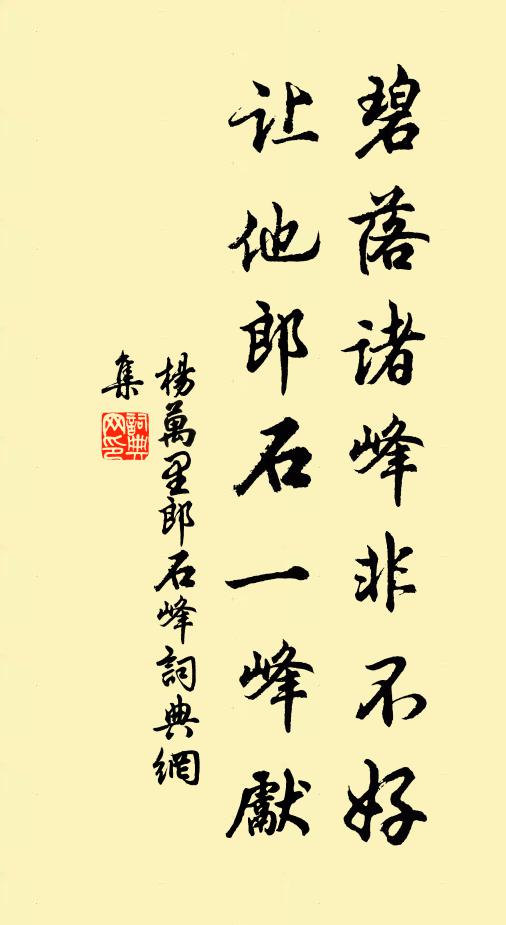 碧落诸峰非不好
让他郎石一峰獻
楊萬里郎石峰詞典網
集
詞典网印